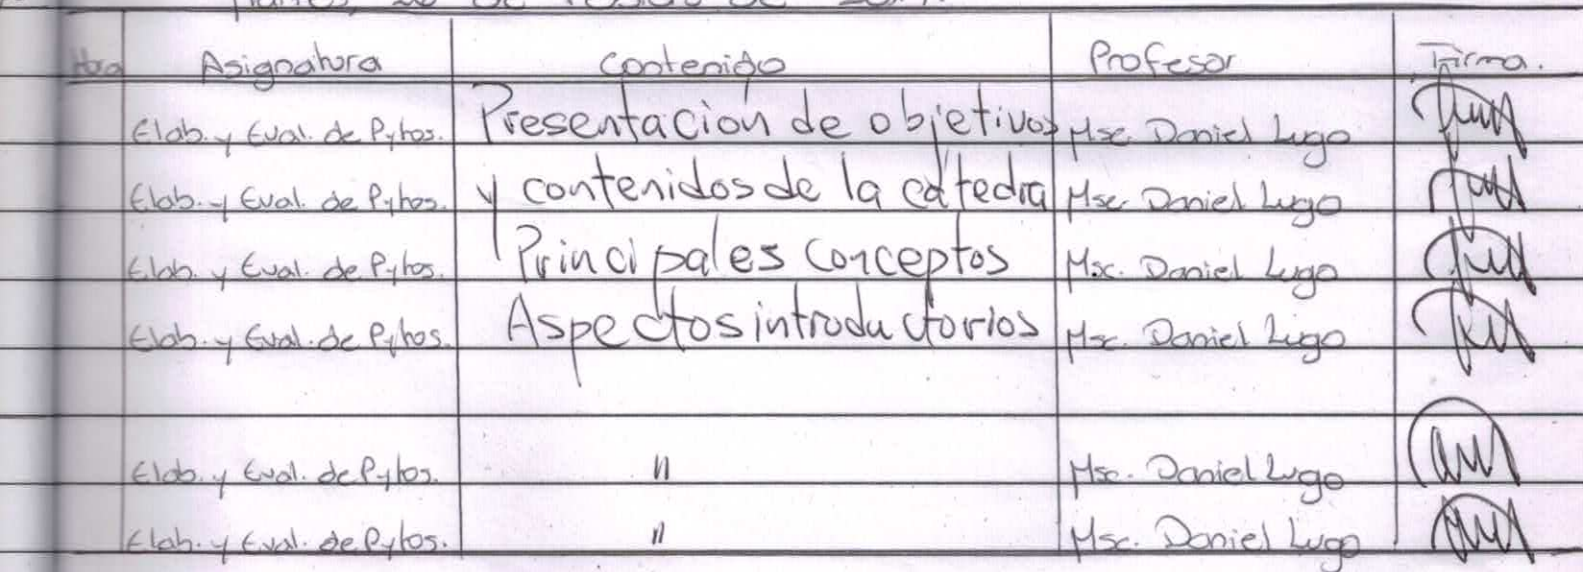 Hora Asignatura Contenido Profesor Firma.
Elab. y Eval. de Pytos. Presentación de objetivos Msc. Daniel Lugo
Elab. y Eval. de Pytos. y contenidos de la cátedra Msc. Daniel Lugo
Elab. y Eval. de Pytos. Principales conceptos Msc. Daniel Lugo
Elab. y Eval. de Pytos. Aspectos introductorios Msc. Daniel Lugo
Elab. y Eval. de Pytos. " Msc. Daniel Lugo
Elab. y Eval. de Pytos. " Msc. Daniel Lugo